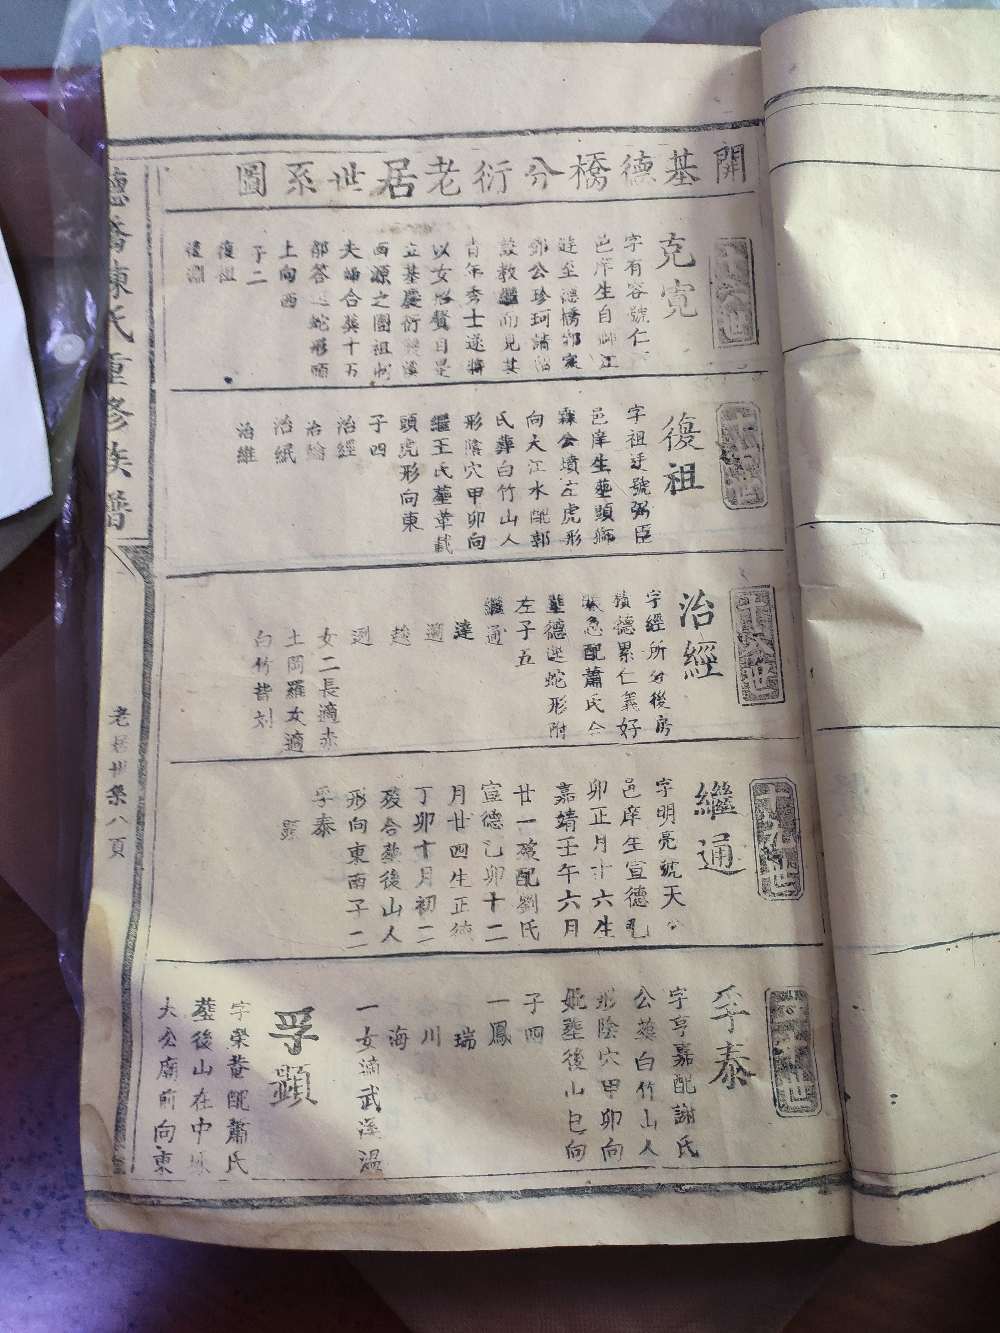 開基德橋分衍老居世系圖
克寬
字有容號仁
邑庠生自
遊至德橋
鄧公珍珂請
設教繼而見其
青年秀士遂將
以女
立基慶衍
西源之圖祖
夫婦合葬十五
都答 蛇形
上向西
子二
復祖
復淵
復祖
字祖 號弼臣
邑庠生葬頭獅
霖公墳左虎形
向大江水配郭
氏葬白竹山人
形陰穴甲卯向
繼王氏葬羊截
頭虎形向東
子四
治經
治綸
治紙
治維
治經
字經所分後房
積德累仁義好
急配蕭氏合
葬德 蛇形附
左子五
繼通
達
適
趁
迥
女二長適赤
土岡羅女適
白竹 刘
十九世
繼通
字明亮號天
邑庠生宣德
卯正月十六生
嘉靖壬午六月
廿一歿配劉氏
宣德乙卯十二
月廿四生正德
丁卯十月初二
歿合葬後山人
形向東南子二
孚泰
顕
孚泰
字亨嘉配謝氏
公葬白竹山人
形陰穴甲卯向
妣葬後山 向
子四
一鳳
瑞
川
海
一女適武溪温
孚顕
字榮 配蕭氏
葬後山在中
大公廟前向東
德橋陳氏重修族譜
老居世系八頁